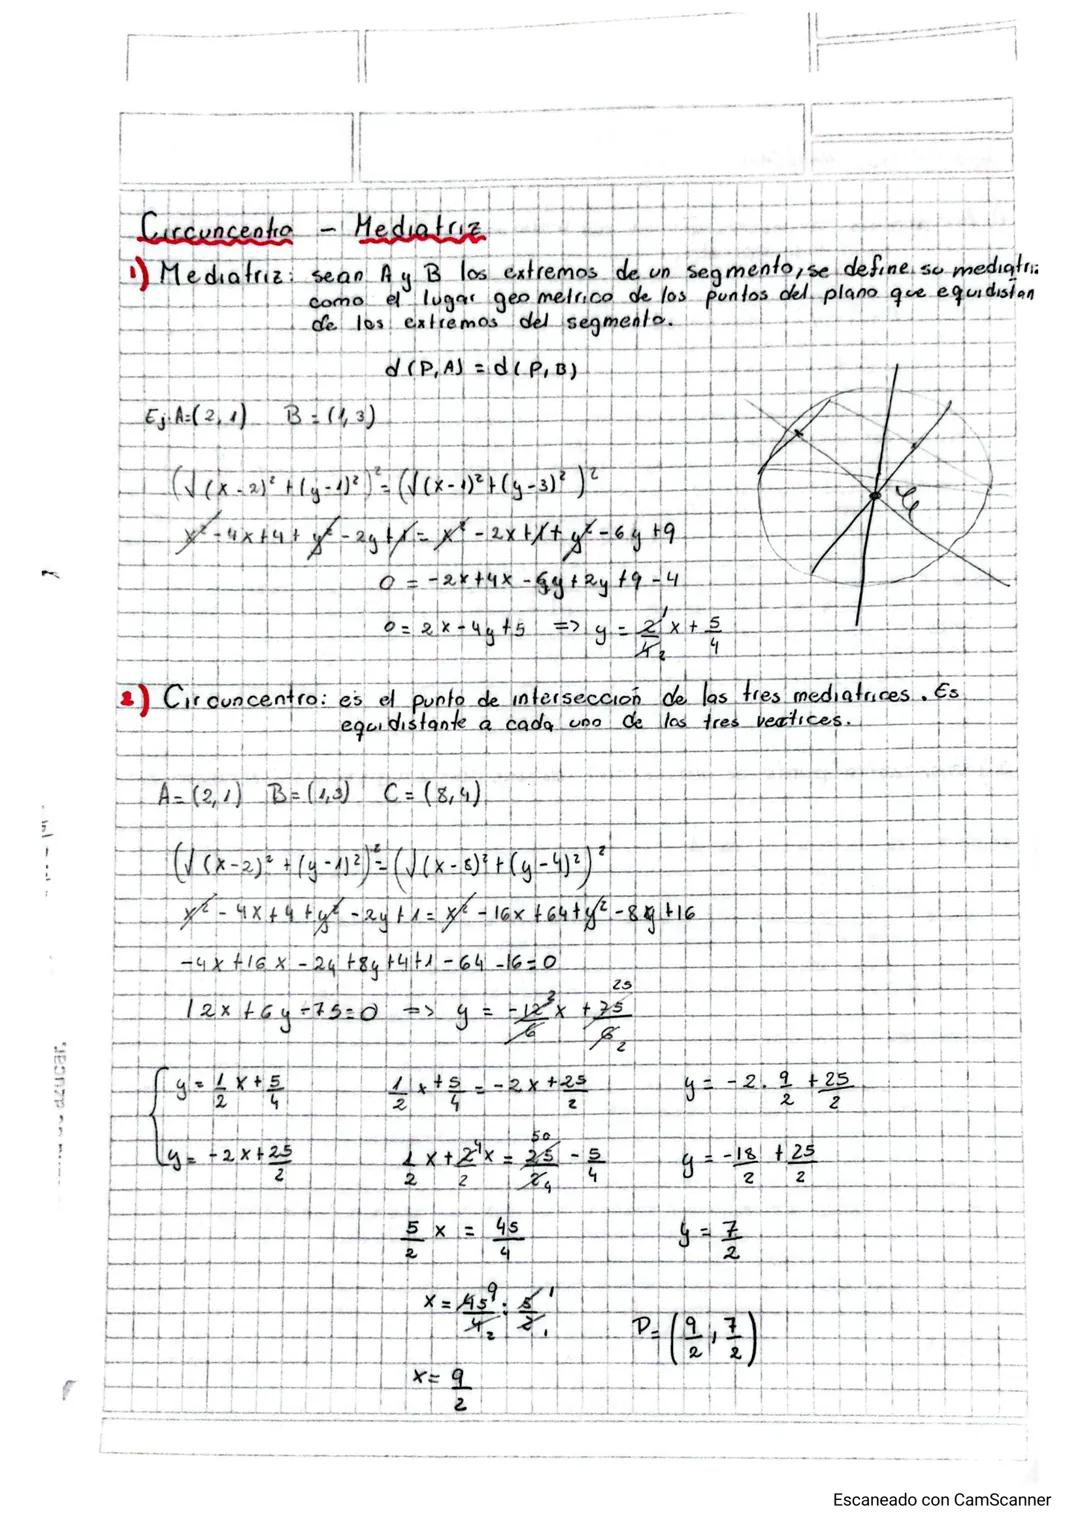 Circuncentro - Mediatriz
1) Mediatriz: sean A y B los extremos de un segmento, se define su mediatri
como el lugar geometrico de los puntos del plano que equidistan
de los extremos del segmento.
d(P,A) = d(P,B)
Ej: A=(2,1) B=(1,3)
(√(x-2)²+(y-1)²)² = (√(x-1)²+(y-3)²)²
x²-4x+4+y²-2y+1 = x²-2x+1+y²-6y+9
0 = -2x+4x-6y+2y+9-4
0 = 2x-4y+5 => y = 2/4 x + 5/4
1 2
2) Circuncentro: es el punto de intersección de las tres mediatrices. Es
equidistante a cada uno de los tres vertices.
A=(2,1) B=(1,3) C=(8,4)
(√(x-2)²+(y-1)²)² = (√(x-8)²+(y-4)²)²
x²-4x+4+y²-2y+1 = x²-16x+64+y²-8y+16
-4x+16x-2y+8y+4+1-64-16=0
12x+6y-75=0 => y = -12/6 x + 75/6
2 25 2
y = 1/2 x + 5/4 1/2 x + 5/4 = -2x + 25/2 y = -2 . 9/2 + 25/2
y = -2x + 25/2 1/2 x + 2⁴x/2 = 25/2 - 5/4 y = -18/2 + 25/2
50 4
5/2 x = 45/4 y = 7/2
x = 45/4 : 5/2 P = (9/2, 7/2)
9 2 1 1
x = 9/2
Escaneado con CamScanner